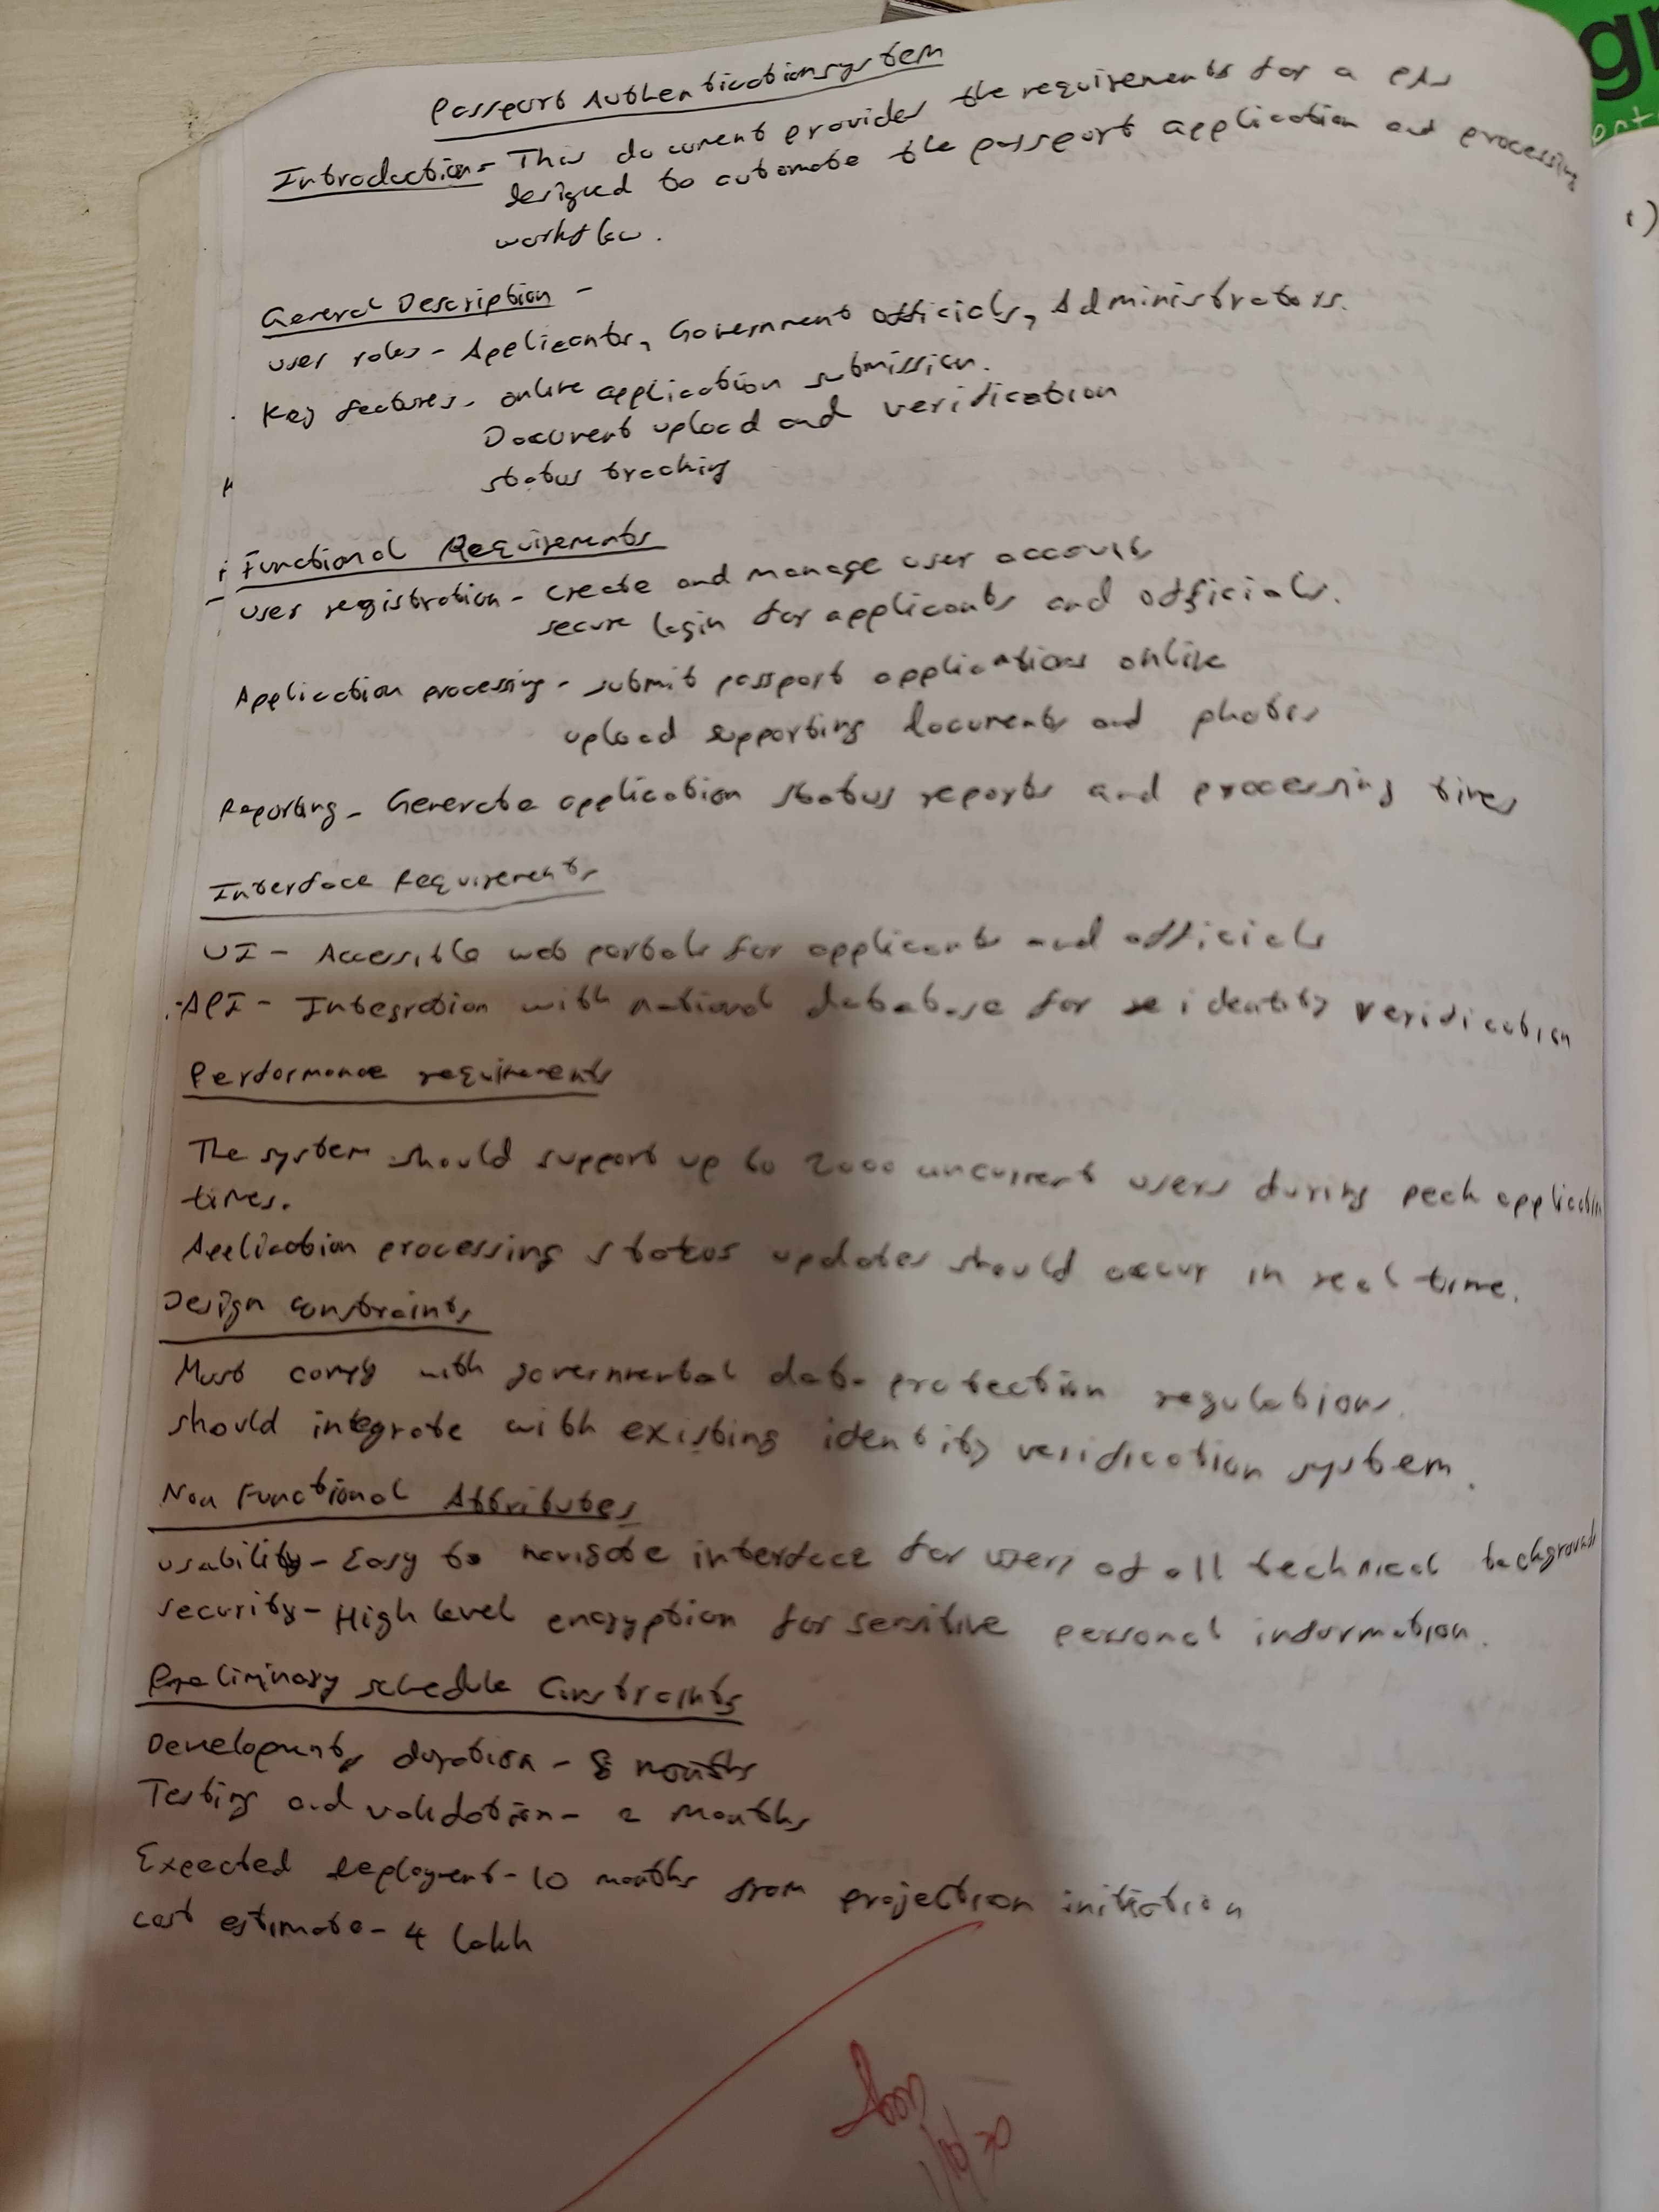 Passport Authentication system
Introduction - This document provides the requirements for a PAS
designed to automate the passport application and processing
workflow.
General Description -
User roles - Applicants, Government officials, Administrators.
Key features - online application submission.
Document upload and verification
status tracking
Functional Requirements
User registration - create and manage user accounts
secure login for applicants and officials.
Application processing - submit passport applications online
upload supporting documents and photos
Reporting - Generate application status reports and processing times
Interface Requirements
UI - Accessible web portals for applicants and officials
API - Integration with national database for identity verification
Performance requirements
The system should support up to 2000 concurrent users during peak application
times.
Application processing status updates should occur in real time.
Design constraints
Must comply with governmental data protection regulations.
should integrate with existing identity verification system.
Non Functional Attributes
Usability - Easy to navigate interface for users of all technical backgrounds
security - High level encryption for sensitive personal information.
Preliminary schedule Constraints
Development duration - 8 months
Testing and validation - 2 months
Expected deployment - 10 months from projection initiation
cost estimate - 4 lakh